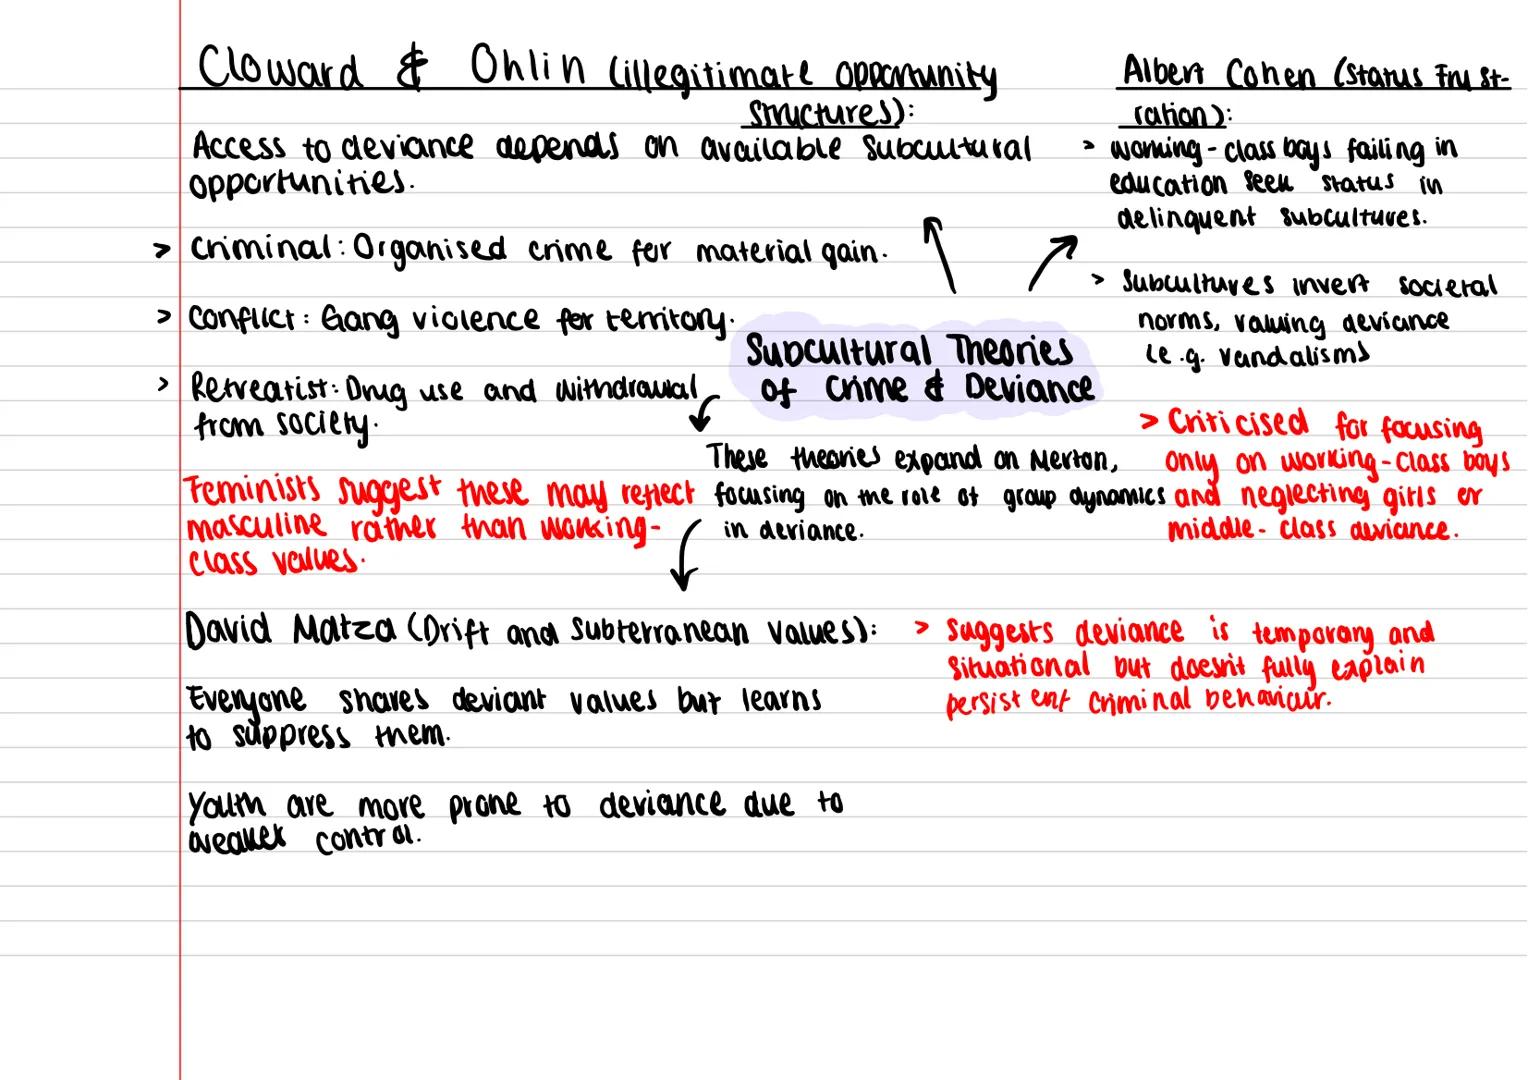 Cloward & Ohlin (illegitimate opportunity
structures):
Access to deviance depends on available subcultural
opportunities.
> Criminal: Organised crime for material gain.
> Conflict: Gang violence for territory.
> Retreatist: Drug use and withdrawal
from society.
Feminists suggest these may reflect
masculine rather than working-
class values.
Albert Cohen (Status Frust-
ration):
> Working-class boys failing in
education seek status in
delinquent subcultures.
> Subcultures invert societal
norms, valuing deviance
(e.g. vandalism)
> Criticised for focusing
only on working-class boys
and neglecting girls or
middle-class deviance.
Subcultural Theories
of Crime & Deviance
These theories expand on Merton,
focusing on the role of group dynamics
in deviance.
David Matza (Drift and Subterranean values):
Everyone shares deviant values but learns
to suppress them.
Youth are more prone to deviance due to
weaker control.
> Suggests deviance is temporary and
situational but doesn't fully explain
persistent criminal behaviour.